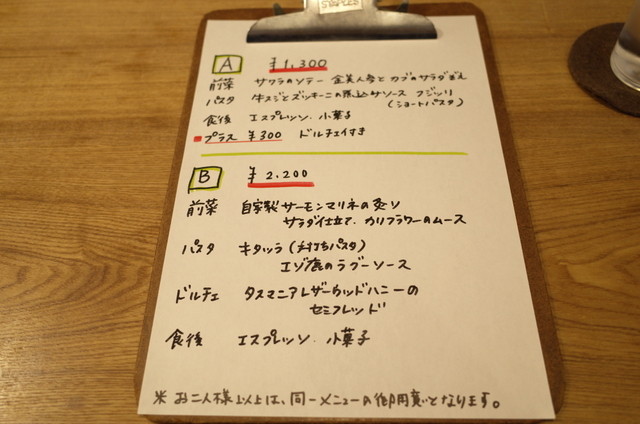 STAPLES
A ¥1,300
前菜 サワラのソテー 金美人参とカブのサラダ添え
パスタ 牛スジとズッキーニの煮込みソース フジッリ
(ショートパスタ)
食後 エスプレッソ、小菓子
プラス ¥300 ドルチェ付き
B ¥2,200
前菜 自家製サーモンマリネの炙り
サラダ仕立て、カリフラワーのムース
パスタ キタッラ(手打ちパスタ)
エゾ鹿のラグーソース
ドルチェ タスマニアレザーウッドハニーの
セミフレッド
食後 エスプレッソ、小菓子
※お二人様以上は、同一メニューの御用意となります。